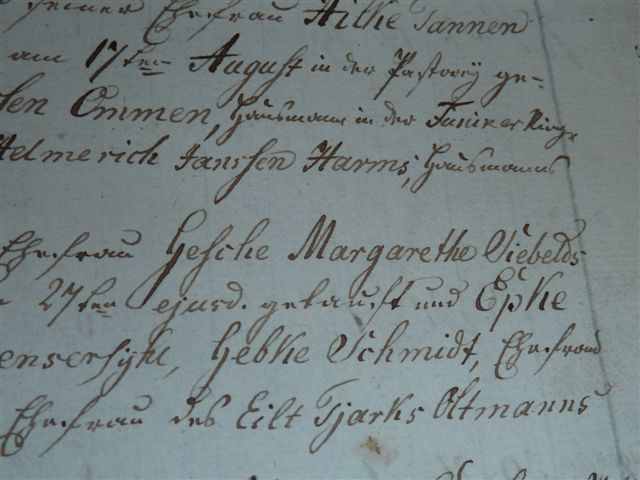 seiner Ehefrau Hilke Tannen
am 17ten August in der Pastorey ge-
sen Emmen, Hausmann in der Funixer Riege
Helmerich Janssen Harms, Hausmanns
Ehefrau Gesche Margarethe Siebelds
27ten ejusd. getauft und Epke
ensersyhl, Gebke Schmidt, Ehefrau
Ehefrau des Eilt Tjarks Oltmanns